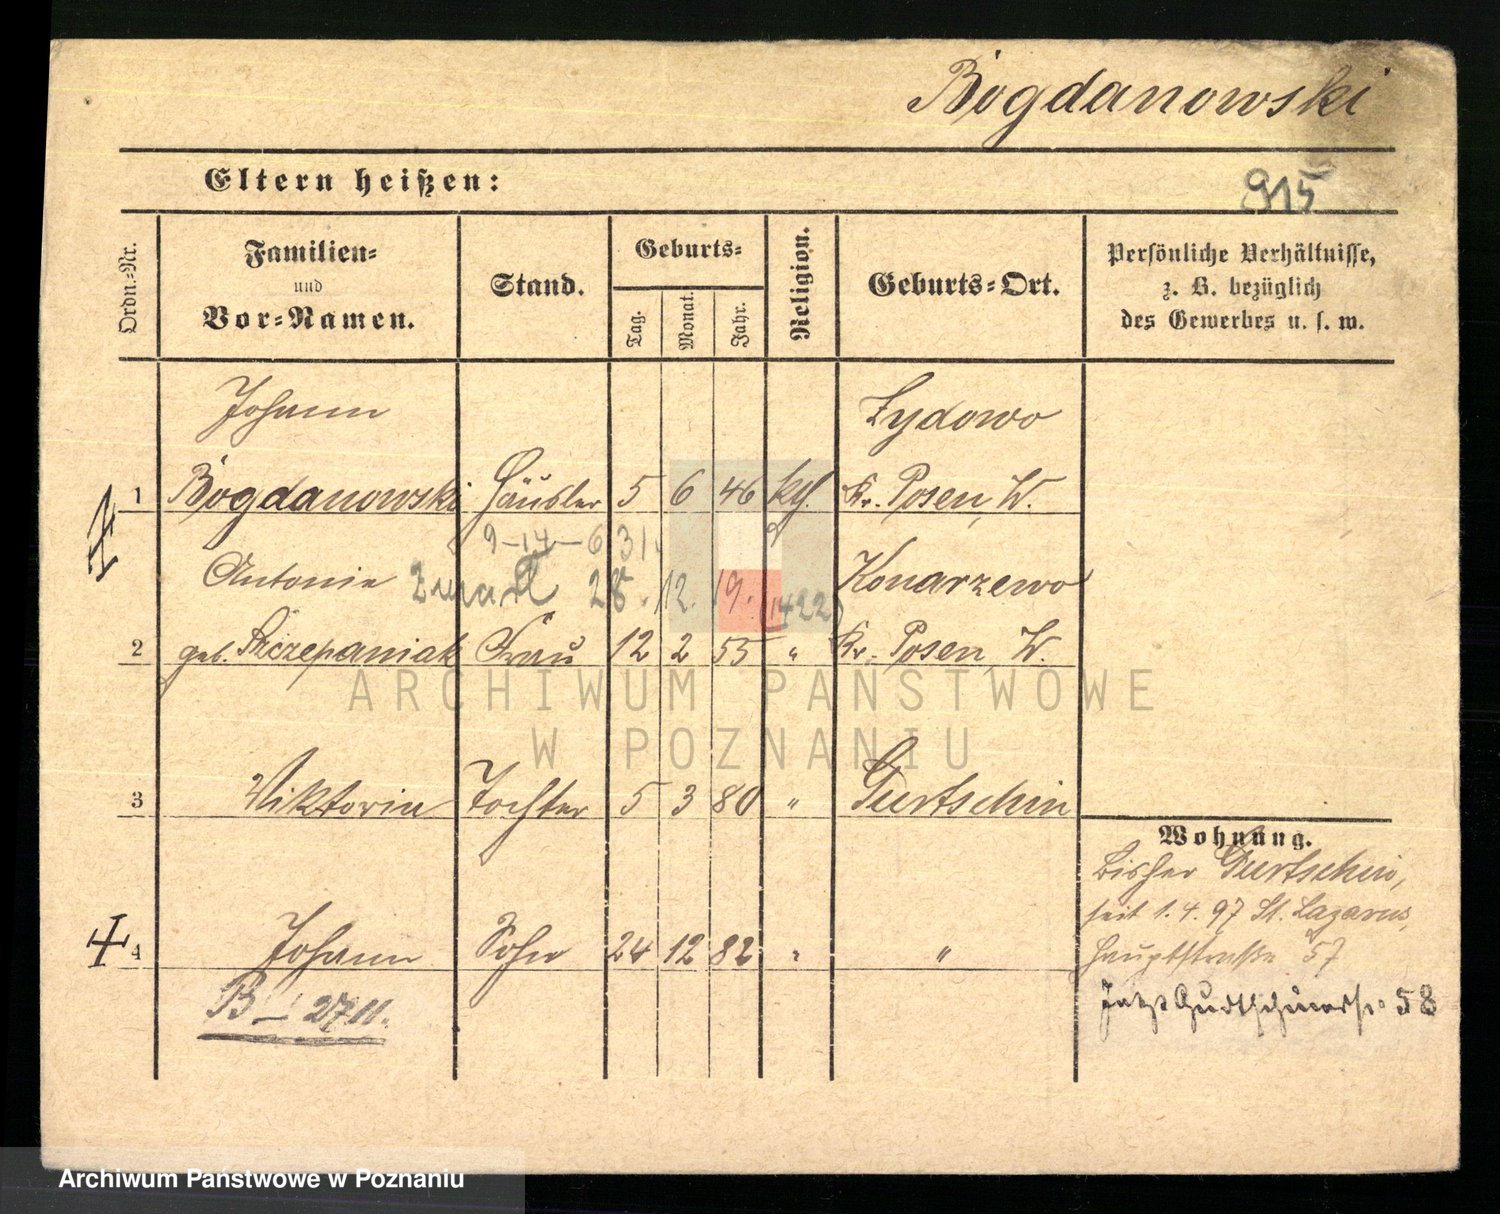 Bogdanowski
Eltern heißen:
915
Ordn.-Nr.
Familien-
und
Vor-Namen.
Stand.
Geburts-
Tag.
Monat.
Jahr.
Religion.
Geburts-Ort.
Persönliche Verhältnisse,
z. B. bezüglich
des Gewerbes u. s. w.
Johann Lydowo
1 Bogdanowski Häusler 5 6 46 kth. Kr. Posen, W.
9-14-6 31
Antonie Zmarł 28. 12. 19. (1422) Konarzewo
2 geb. Szczepaniak Frau 12 2 55 " Kr. Posen, W.
3 Viktoria Tochter 5 3 80 " Gurtschin
4 Johann Sohn 24 12 82 " "
B - 2711.
Wohnung.
bisher Gurtschin,
seit 1.4.97 St. Lazarus,
Hauptstraße 57
Jetzt 58
ARCHIWUM PAŃSTWOWE
W POZNANIU
Archiwum Państwowe w Poznaniu